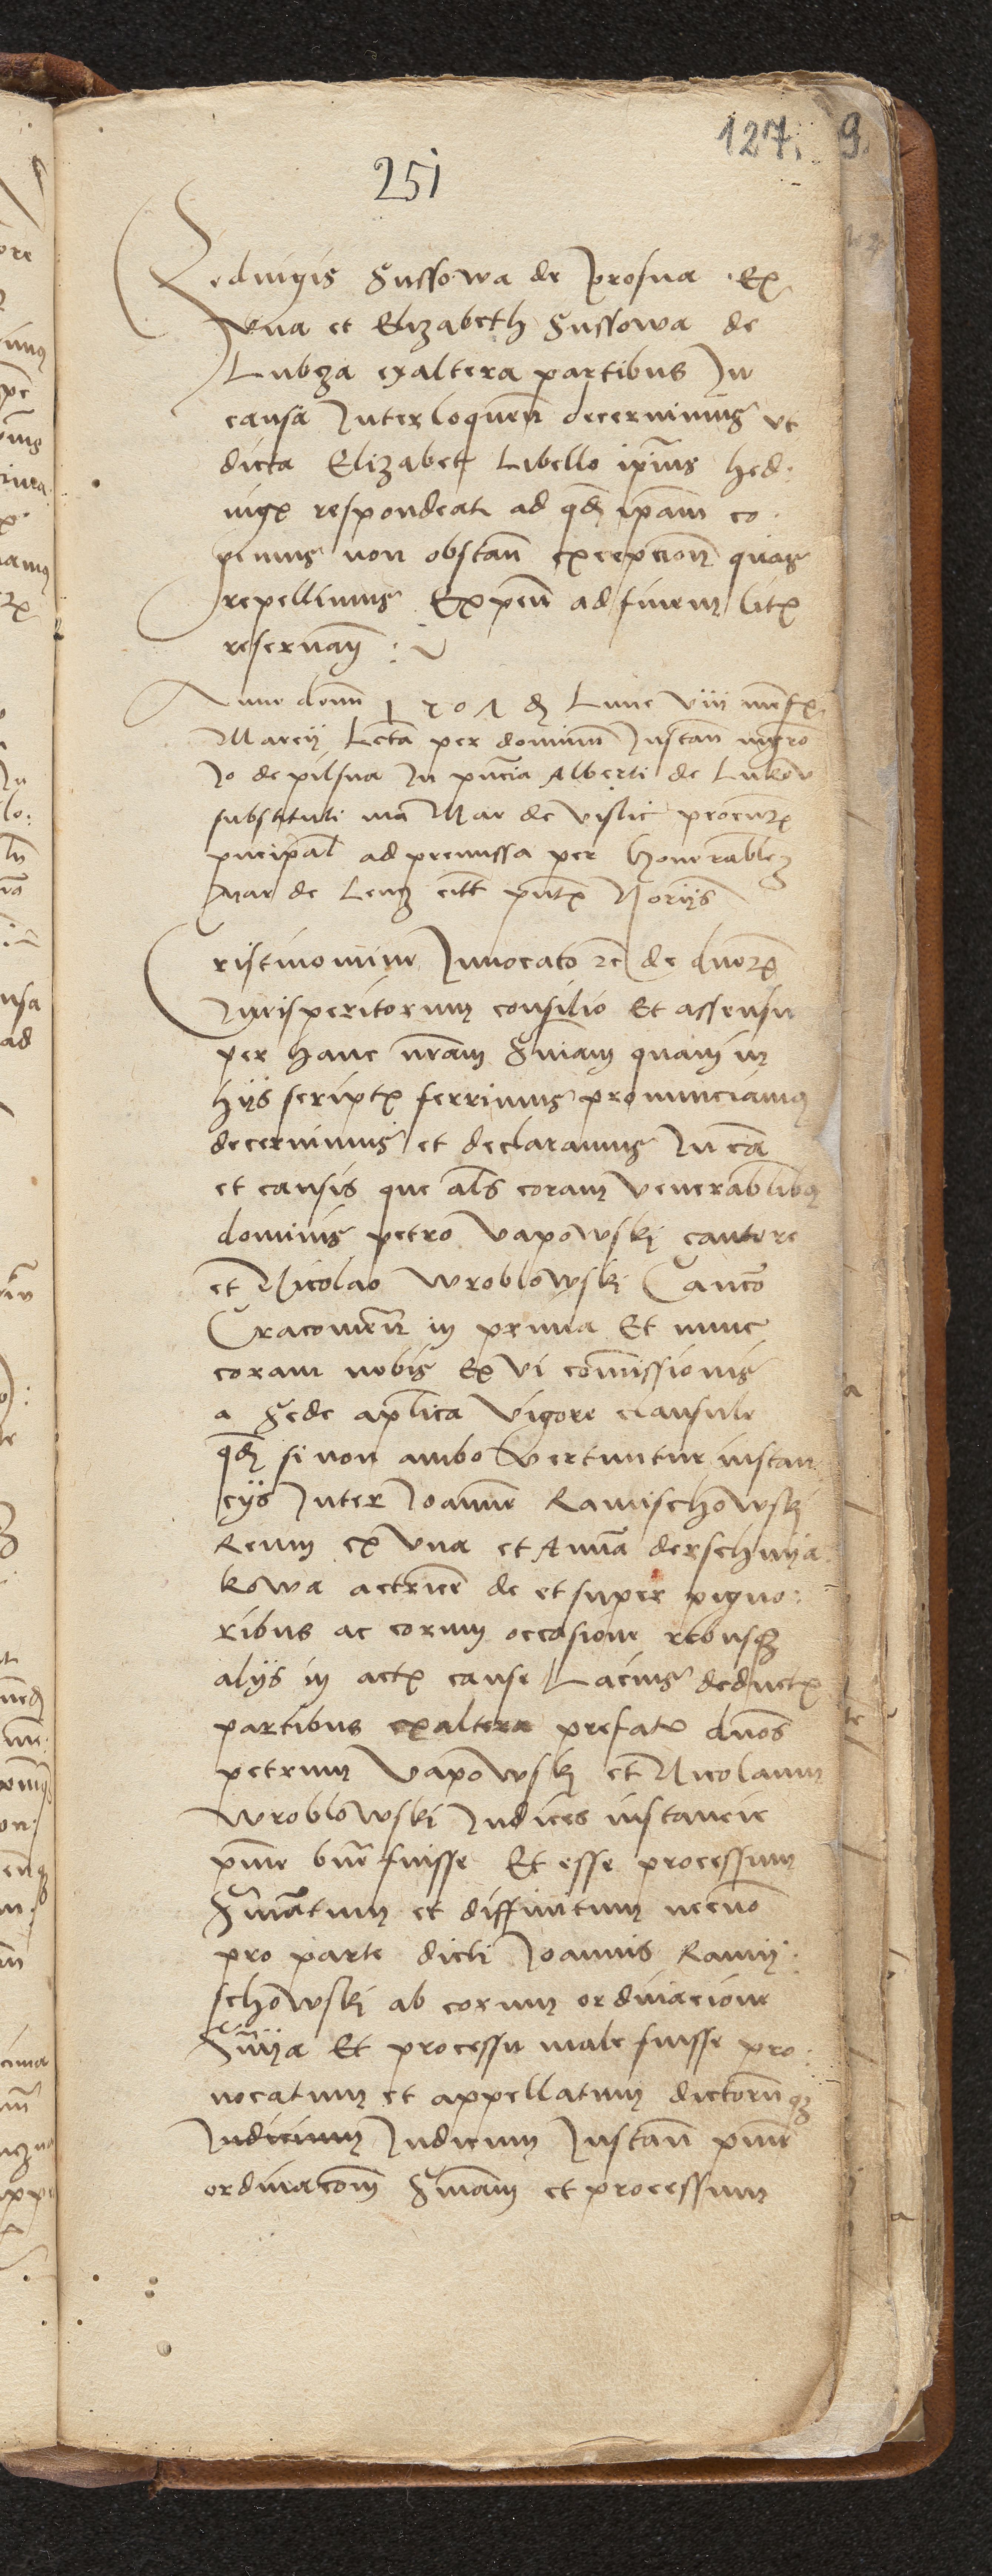 127. 9.
251
Hedvigis Gussowa de Prosna Ex
Una et Elizabeth Gussowa de
Lubcza exaltera partibus In
causa Interloquen decernimus ut
dicta Elizabet Libello ipius hed:
vigx respondeat ad qd ipam co:
gimus non obstan excepcion quas
repellimus Expen ad finem litx
reservan :
Anno domi 1501 d Lune viii mensx
Marcii Lecta per dominum Instan mgrom
Jo de pilsna In pncia Alberti de Lukow
substituti ma Mar de vislic procurx
pncipal ad premissa per honorablez
Mar de Lenz citt pntx Noriis
Cristinomine Invocato rc de duorx
Jurisperitorum consilio Et assensu
per hanc nram Sniam quam in
hiis scriptx ferrimus pronunciamus
decernimus et declaramus In ca
et causis que als coram venerablibus
dominis petro vapowski cantore
et Nicolao wroblowski Canco
Cracovien in prima Et nunc
coram nobis Ex vi commissionis
a Sede aplica vigore clausule
qd si non ambo vertuntur instan
ciis Inter Joanne Ramischowski
Reum ex una et Anna derschniia
kowa actrice de et super pigno:
ribus ac eorum occasione rebusqz
aliis in actx cause Lacius deductx
partibus exaltera prefatx dnos
petrum vapowski et Nicolaum
wroblowski Judices instancie
pme bne fuisse Et esse processum
Snatum et diffinitum necno
pro parte dicti Joannis Ramii:
schowski ab eorum ordinacione
Sniia Et processu male fuisse pro:
vocatum et appellatum dictorumqz
Judicium Judicum Instan pme
ordinacom Sniam et processum